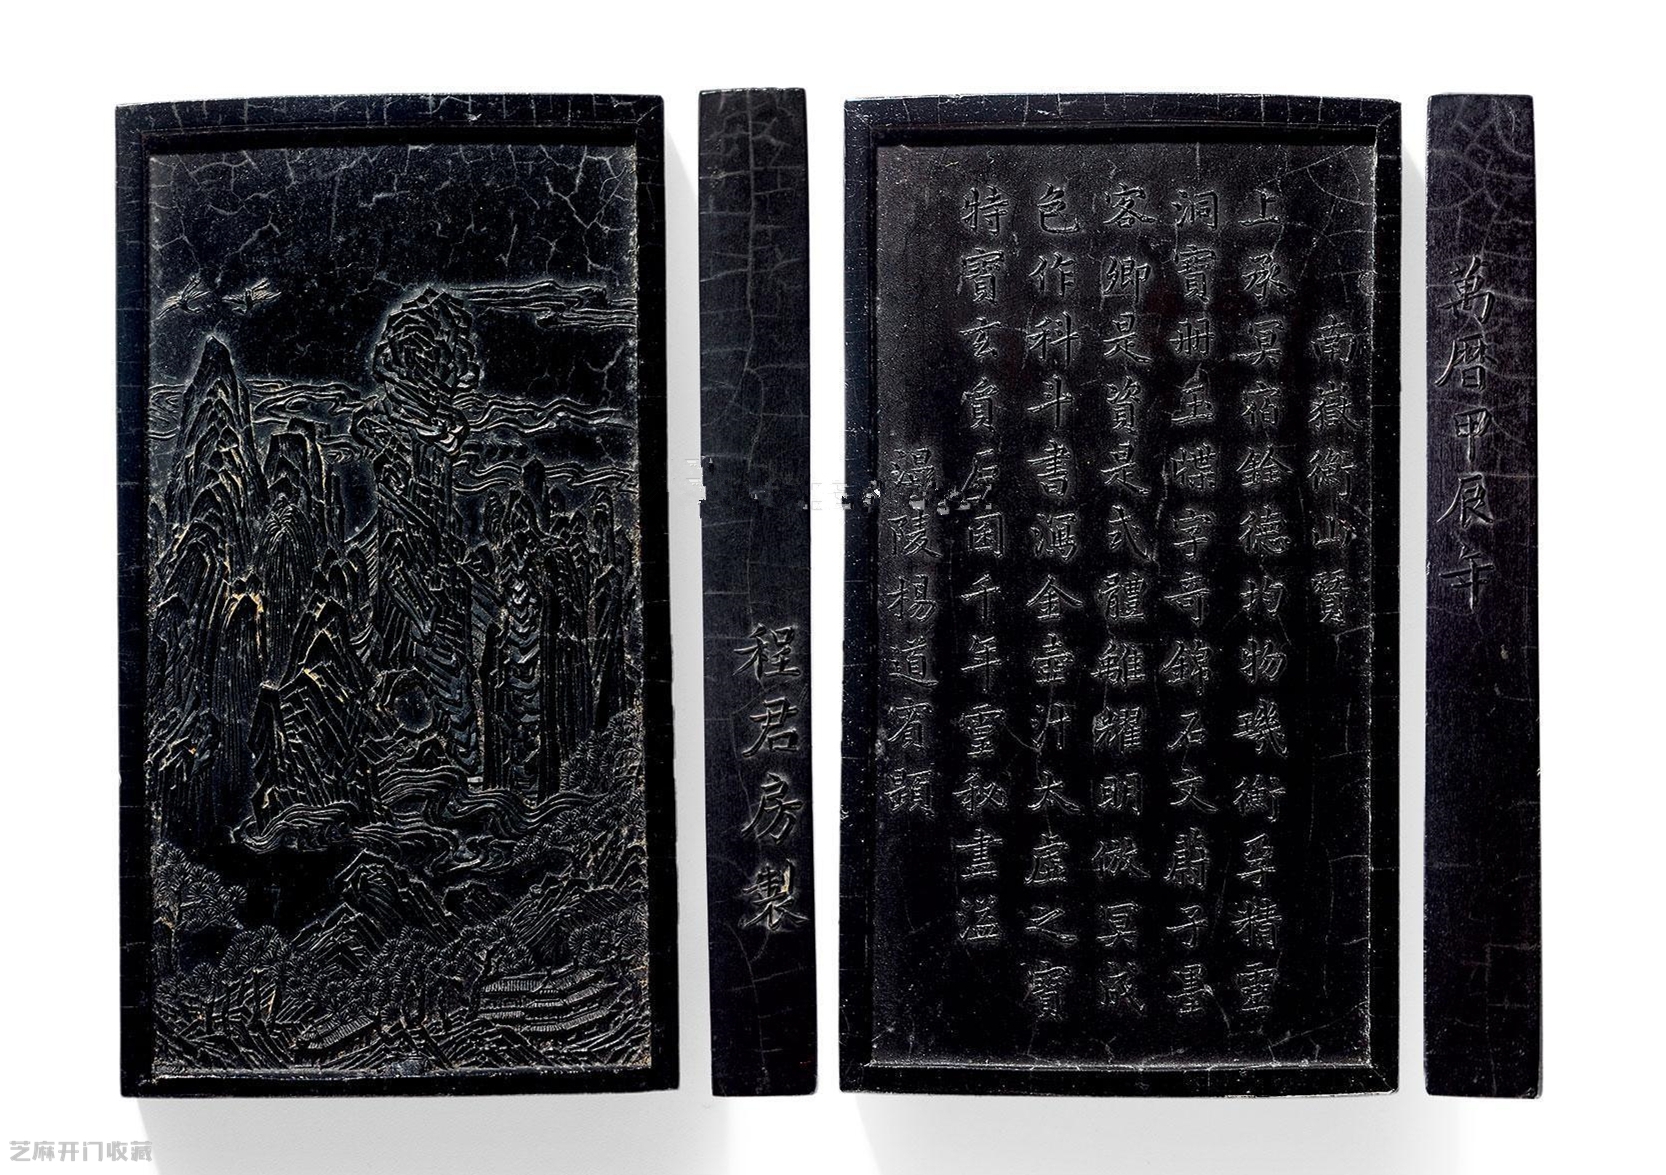 程君房製
南嶽衡山贊
上承冥宿銓德均物璣衡孕精靈
洞寶册玉牒字奇錦石文蔚子墨
客卿是資是式體離耀明倣冥成
色作科斗書金壺汁太虛之寶
特寶玄質石囷千年靈秘畫溢
温陵楊道賓題
萬暦甲辰年
芝麻开门收藏